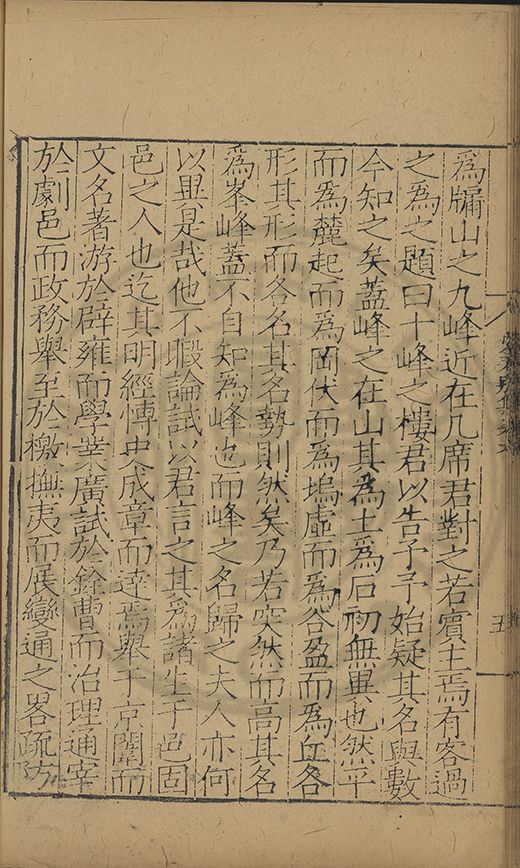 為牖山之九峰近在几席君對之若賓主焉有客過
之為之題曰十峰之樓君以告予予始疑其名與數
今知之矣蓋峰之在山其為土為石初無異也然平
而為麓起而為岡伏而為塢虛而為谷盈而為丘各
形其形而各名其名勢則然矣乃若突然而高其名
為峯峰蓋不自知為峰也而峰之名歸之夫人亦何
以異是哉他不暇論試以君言之其為諸生于邑固
邑之人也迄其明經愽史成章而達焉舉于京闈而
文名著游於辟雍而學業廣試於銓曹而治理通宰
於劇邑而政務舉至於檄撫夷而展變通之畧疏防
五